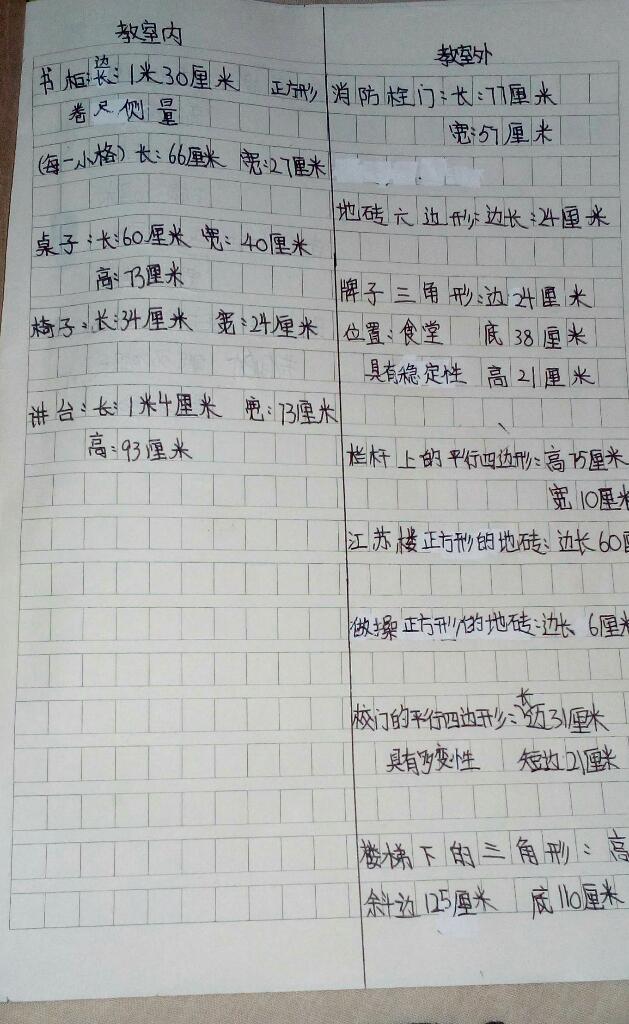 教室内
书柜:边长:1米30厘米 正方形
卷尺侧量
(每一小格)长:66厘米 宽:27厘米
桌子:长:60厘米 宽:40厘米
高:73厘米
椅子:长:34厘米 宽:24厘米
讲台:长:1米4厘米 宽:73厘米
高:93厘米
教室外
消防栓门:长:77厘米
宽:57厘米
地砖六边形:边长:24厘米
牌子三角形:边24厘米
位置:食堂 底38厘米
具有稳定性 高21厘米
栏杆上的平行四边形:高75厘米
宽10厘米
江苏楼正方形的地砖:边长60厘
做操正方形的地砖:边长6厘米
校门的平行四边形:长边31厘米
具有变性 短边21厘米
楼梯下的三角形:高
斜边125厘米 底110厘米